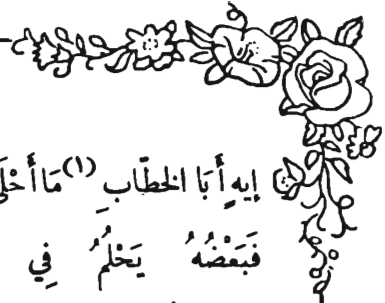 إِيهِ أَبَا الخَطَّابِ (١) مَا أَحْلَى
فَبَعْضُهُ يَحْلُمُ فِي